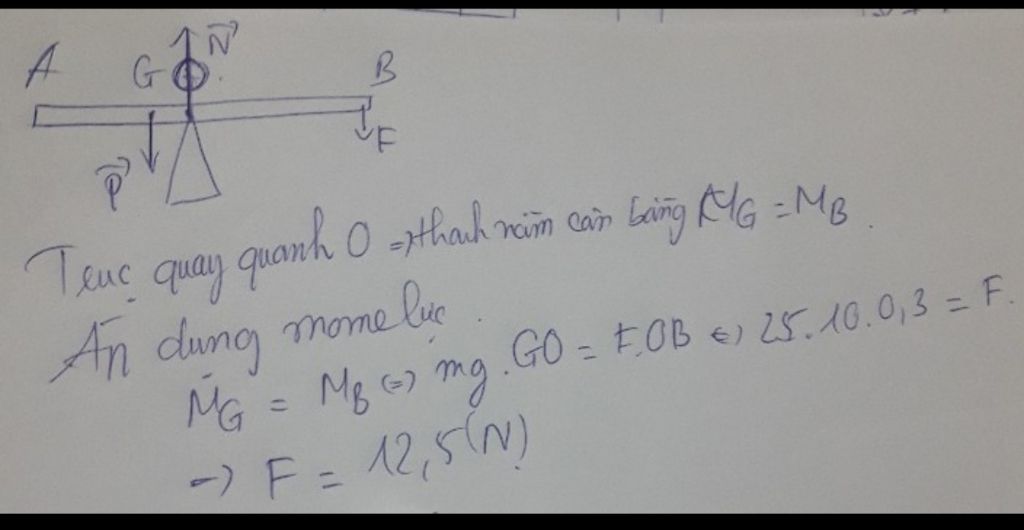 A G N B
P F
Trục quay quanh O => thanh nằm cân bằng MG = MB.
Áp dụng mome lực.
MG = MB <=> mg.GO = F.OB <=> 25.10.0,3 = F.
-> F = 12,5 (N)